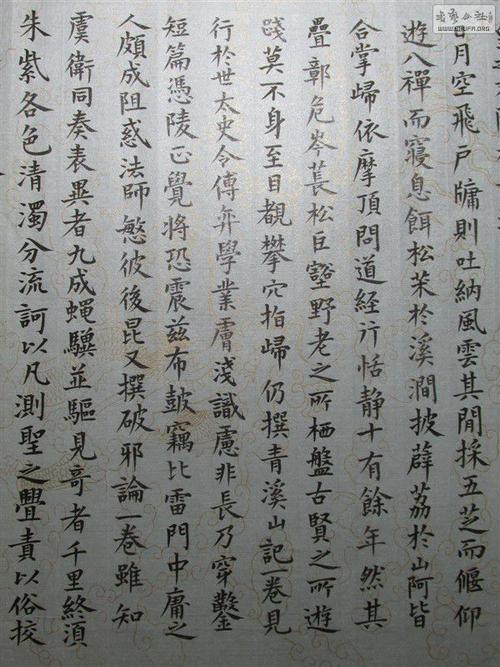 日月空飛戶牖則吐納風雲其閒採五芝而偃仰
遊八禪而寢息餌松茱於溪澗披薜荔於山阿皆
合掌歸依摩頂問道經行恬靜十有餘年然其
疊鄣危岑萇松巨壑野老之所栖盤古賢之所遊
踐莫不身至目覩攀穴指歸仍撰青溪山記一卷見
行於世太史令傅弈學業膚淺識慮非長乃穿鑿
短篇憑陵正覺將恐震茲布皷竊比雷門中庸之
人頗成阻惑法師慜彼後昆又撰破邪論一卷雖知
虞衛同奏表異者九成蝇驥並驅見哥者千里終湏
朱紫各色清濁分流訶以凡測聖之舋責以俗挍
WWW.SHUFA.ORG